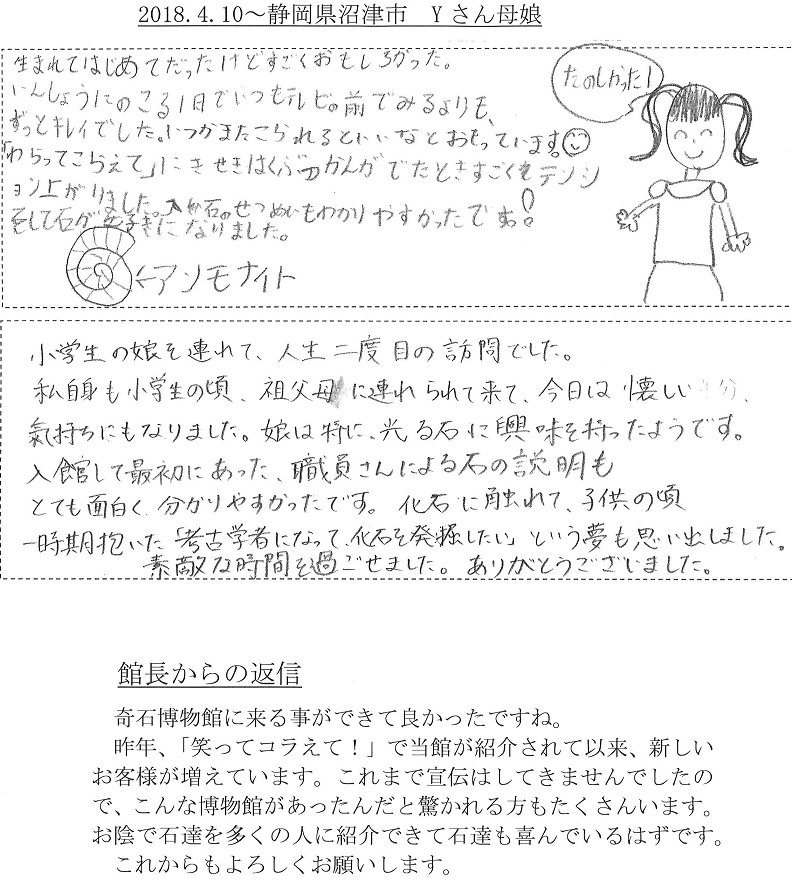 2018.4.10～静岡県沼津市　Ｙさん母娘
生まれてはじめてだったけどすごくおもしろかった。
いんしょうにのこる1日でいつもテレビの前でみるよりも、
ずっとキレイでした。いつかまたこられるといいなとおもっています。
「わらってこらえて」にきせきはくぶつかんがでたときすごくテンシ
ョン上がりました。入口石のせつめいもわかりやすかったです!
そして石が大好きになりました。
たのしかった!
←アンモナイト
小学生の娘を連れて、人生二度目の訪問でした。
私自身も小学生の頃、祖父母に連れられて来て、今日は懐しい
気持ちにもなりました。娘は特に、光る石に興味を持ったようです。
入館して最初にあった、職員さんによる石の説明も
とても面白く、分かりやすかったです。化石に触れて、子供の頃
一時期抱いた「考古学者になって、化石を発掘したい」という夢も思い出しました。
素敵な時間を過ごせました。ありがとうございました。
館長からの返信
奇石博物館に来る事ができて良かったですね。
昨年、「笑ってコラえて！」で当館が紹介されて以来、新しい
お客様が増えています。これまで宣伝はしてきませんでしたの
で、こんな博物館があったんだと驚かれる方もたくさんいます。
お陰で石達を多くの人に紹介できて石達も喜んでいるはずです。
これからもよろしくお願いします。